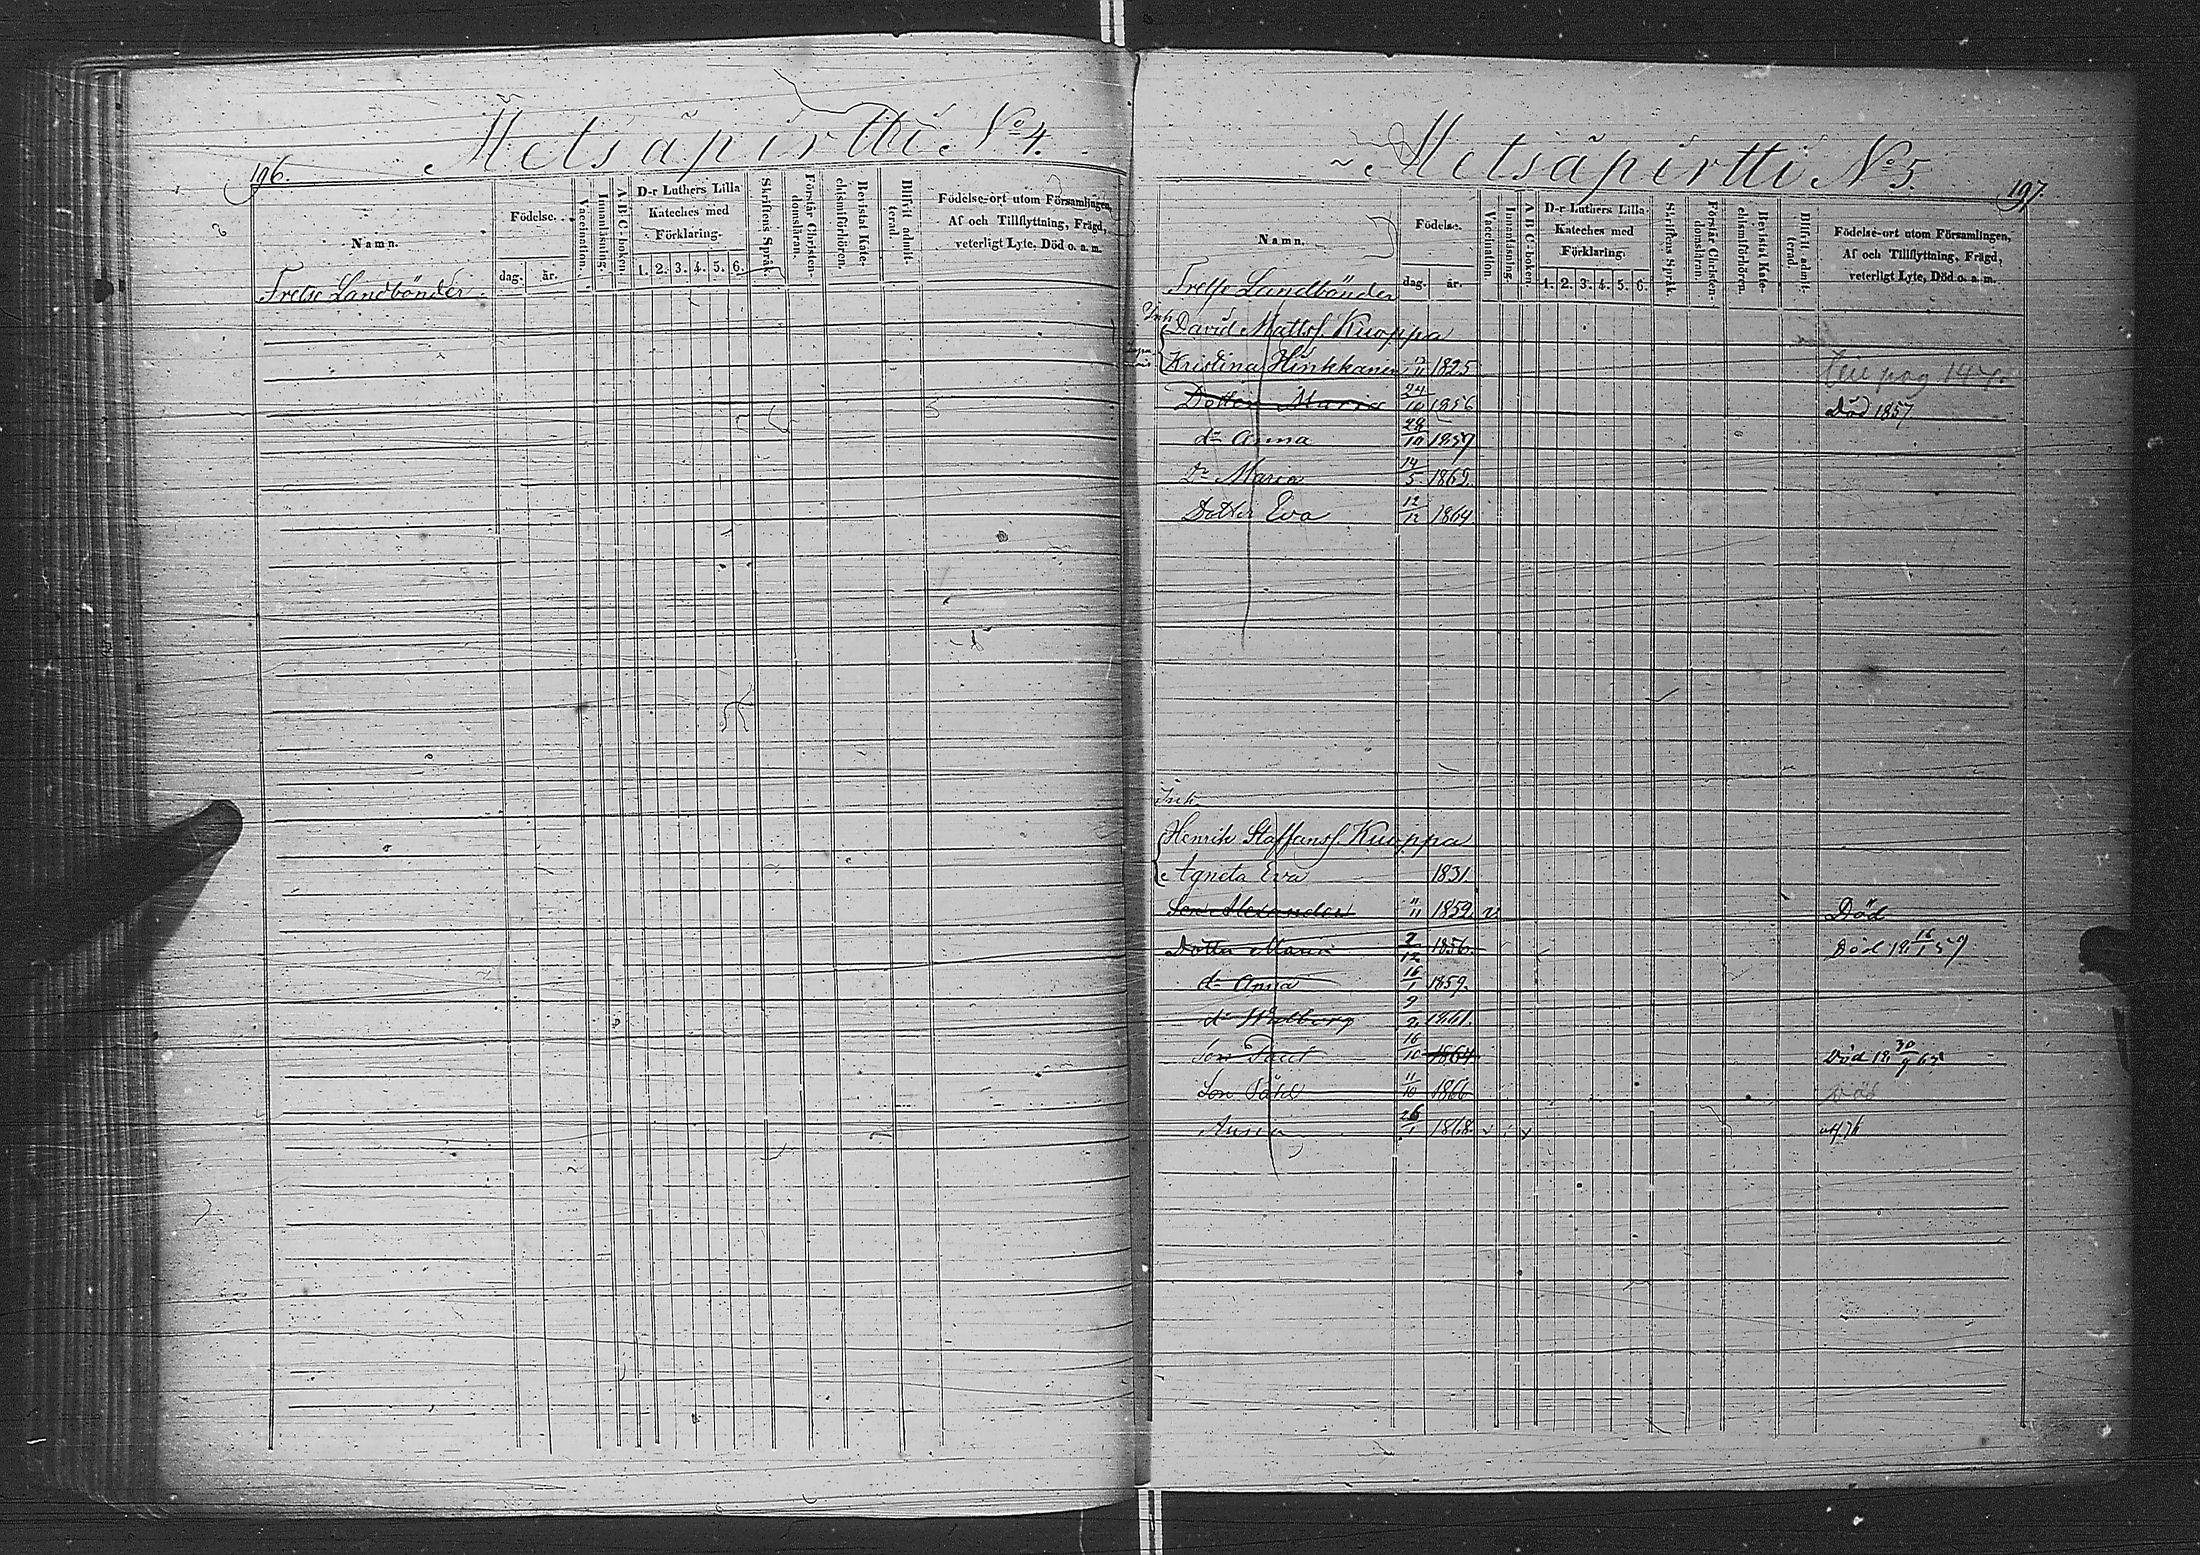 196.
Metsäpirtti No 4.
Namn.
Födelse.
dag.
år.
Vaccination.
Innanläsning.
A B C-boken.
D-r Luthers Lilla
Kateches med
Förklaring.
1. 2. 3. 4. 5. 6.
Skriftens Språk.
Förstår Christen-
domsläran.
Bevistat Kate-
chismiförhören.
Blifvit admit-
terad.
Födelse-ort utom Församlingen,
Af och Tillflyttning, Frägd,
veterligt Lyte, Död o. a. m.
Frelse Landbönder
Metsäpirtti No 5.
197.
Namn.
Födelse.
dag.
år.
Vaccination.
Innanläsning.
A B C-boken.
D-r Luthers Lilla
Kateches med
Förklaring.
1. 2. 3. 4. 5. 6.
Skriftens Språk.
Förstår Christen-
domsläran.
Bevistat Kate-
chismiförhören.
Blifvit admit-
terad.
Födelse-ort utom Församlingen,
Af och Tillflyttning, Frägd,
veterligt Lyte, Död o. a. m.
Frelse Landbönder
Inh.
David Mattss. Kuoppa
Kristina Hinkkanen 1825
Dotter Maria 24/10 1856 Död 1857
d:o Anna 28/10 1857
D:o Maria 14/5 1862
Dotter Eva 12/12 1864
Inh.
Henrik Staffanss. Kuoppa
Agneta Eva 1831
Son Alexander 1852 v Död
Dotter Maria 2/12 1856 Död 16/1 57
d:o Anna 16/1 1859.
d:o Walborg 9/2 1861.
Son Paul 16/10 1864 Död 30/9 65
Son Påhl 11/10 1866 Död
26/1 1868